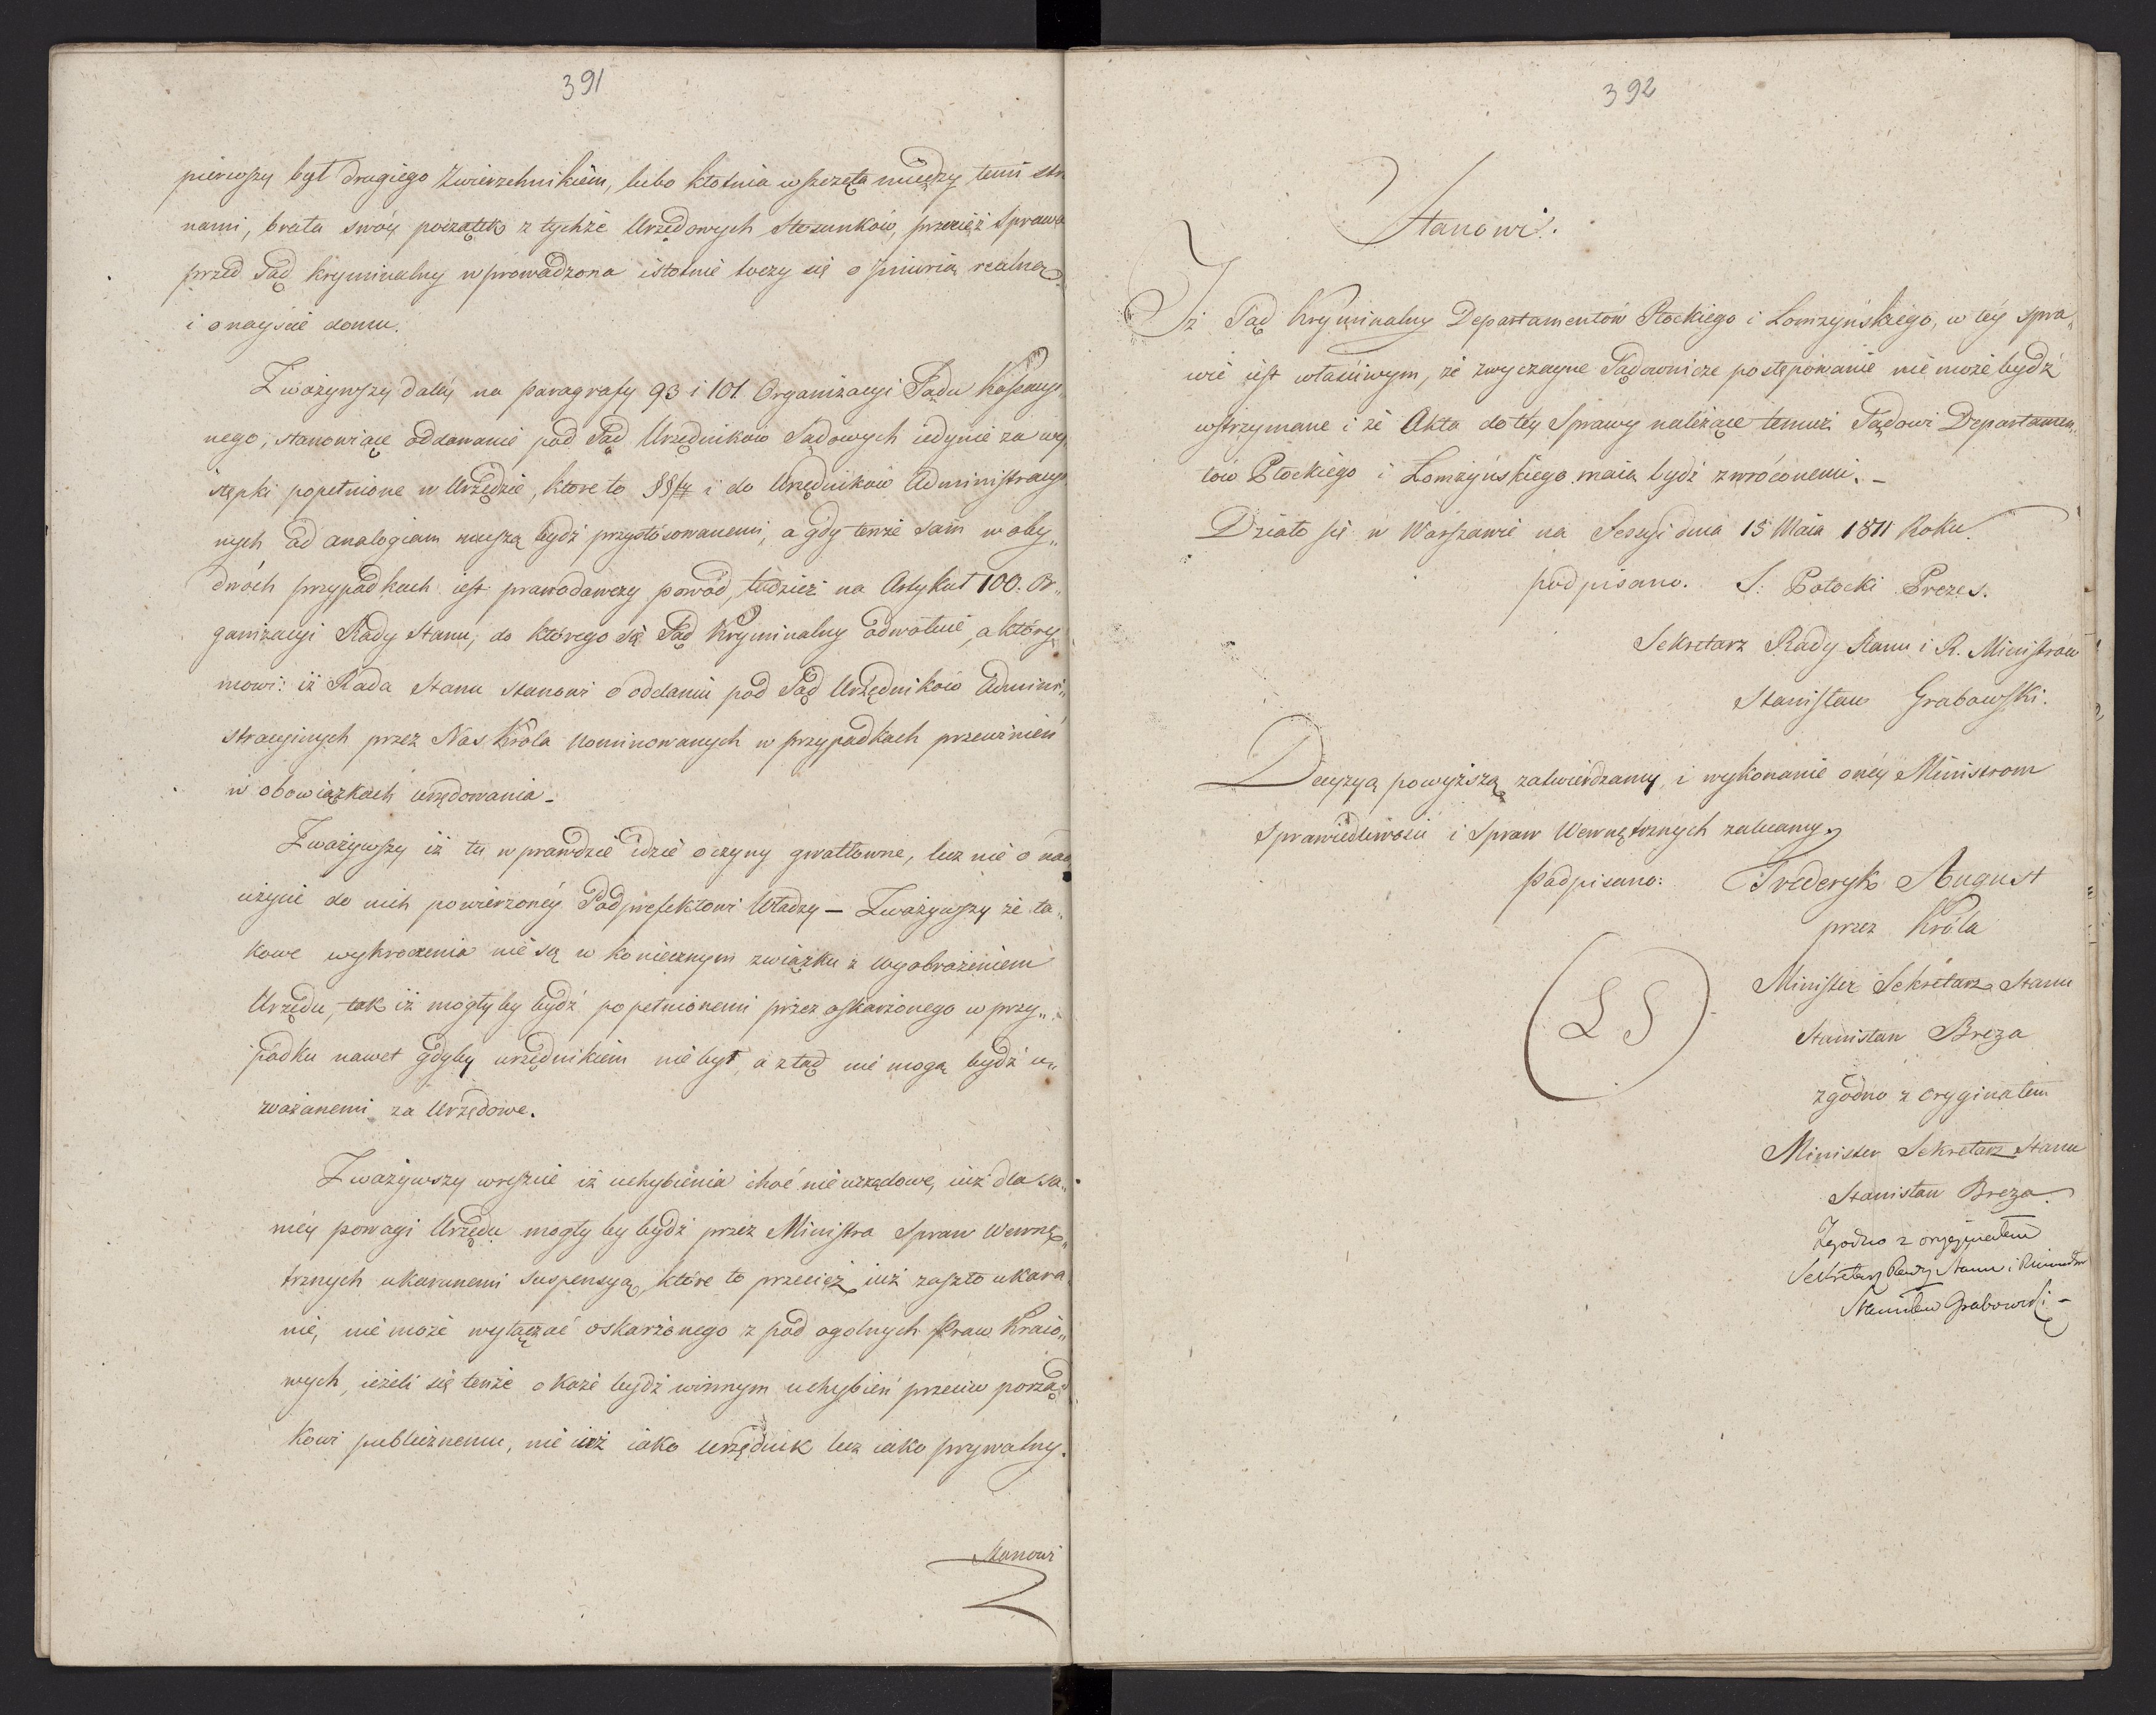 391
pierwszy był drugiego Zwierzchnikiem, lubo kłotnia wszczęta między temi stro
nami, brała swóy początek z tychże Urzędowych Stosunków, przecięż Sprawa
przed Sąd kryminalny wprowadzona istotnie toczy się o Iniurią realną
i o nayście domu.
Zważywszy daléy na paragrafy 93 i 101 Organizacyi Sądu Kassacyi„
nego, stanowiące oddawanie pod Sąd Urzędników Sądowych iedynie za wy
stępki popełnione w Urzędzie, ktore to §§fy i do Urzędników Administracyi
nych ad analogiam muszą bydź przystósowanemi, a gdy tenże sam w oby„
dwóch przypadkach iest prawodawczy powód, tudzież na Artykuł 100. Or„
ganizacyi Rady Stanu, do którego się Sąd Kryminalny odwołuie, a który
mowi: iż Rada Stanu stanowi o oddaniu pod Sąd Urzędników Admini„
stracyinych przez Nas Króla nominowanych w przypadkach przewinień
w obowiązkach urzędowania_
Zważywszy iż tu wprawdzie idzie o czyny gwałtowne, lecz nie o nad
użycie do nich powierzonéy Podprefektowi Władzy — Zważywszy że ta„
kowe wykroczenia nie są w koniecznym związku z wyobrażeniem
Urzędu, tak iż mogłyby bydź popełnionemi przez oskarżonego w przy„
padku nawet gdyby urzędnikiem nie był, a ztąd nie mogą bydź u„
ważanemi za Urzędowe.
Zważywszy wreszcie iż uchybienia choć nie urzędowe, iuż dla sa„
méy powagi Urzędu mogły by bydź przez Ministra Spraw Wewnę„
trznych ukaranemi suspensyą, które to przecież iuż zaszło ukara
nie, nie może wyłączać oskarżonego z pod ogolnych Praw Kraio„
wych, ieżeli się tenże okaże bydź winnym uchybień przeciw porząd
kowi publicznemu, nie iuż iako Urzędnik lecz iako prywatny.
Stanowi
392
Stanowi.
Iż Sąd Kryminalny Departamentów Płockiego i Łomżyńskiego, w téy spra„
wie iest właściwym, że zwyczayne Sądownicze postępowanie nie może bydź
wstrzymane i że Akta do téy Sprawy należące temuż Sądowi Departamen„
tów Płockiego i Łomżyńskiego maią bydź zwróconemi. _
Działo się w Warszawie na Sessyi dnia 15 Maia 1811 Roku.
podpisano. S: Potocki Prezes.
Sekretarz Rady Stanu i R. Ministrów
Stanisław Grabowski.
Decyzyą powyższą zatwierdzamy, i wykonanie onéy Ministrom
Sprawiedliwości i Spraw Wewnętrznych zalecamy.
podpisano: Frederyk August
przez Króla
Minister Sekretarz Stanu
(LS)
Stanisław Breza
zgodno z oryginałem
Minister Sekretarz Stanu
Stanisław Breza.
Zgodno z oryginałem
Sekretarz Rady Stanu i R Ministrów
Stanisław Grabowski _